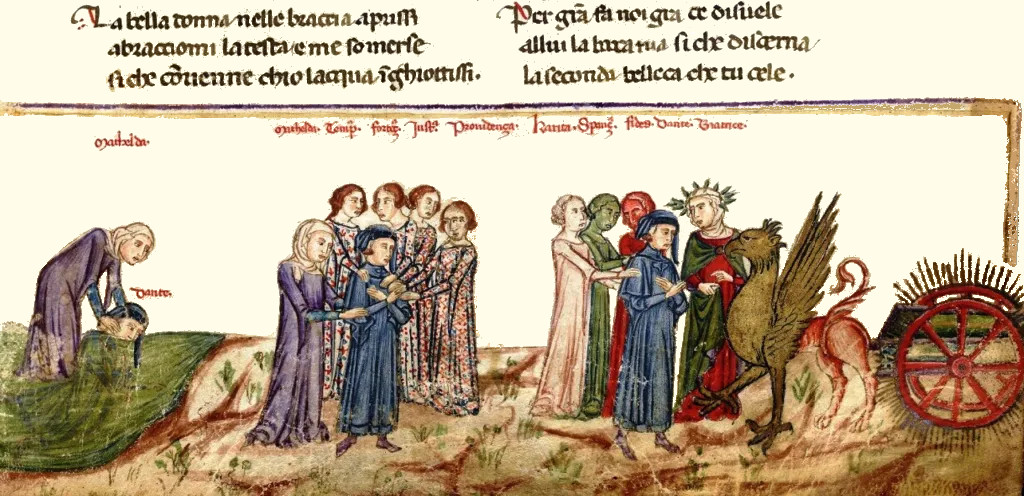 La bella donna nelle braccia aprissi
abracciomi la testa e me somerse
si che cōuenne chio lacqua īghiottissi.
Per grā fa noi grā ce disuele
allui la boca tua si che discerna
la seconda belleça che tu cele.
Mathelda.
Mathelda. Temp. fortez. Just. Prouidenza. Karita. Spanz. fides. Dante. Beatrice.
Dante.